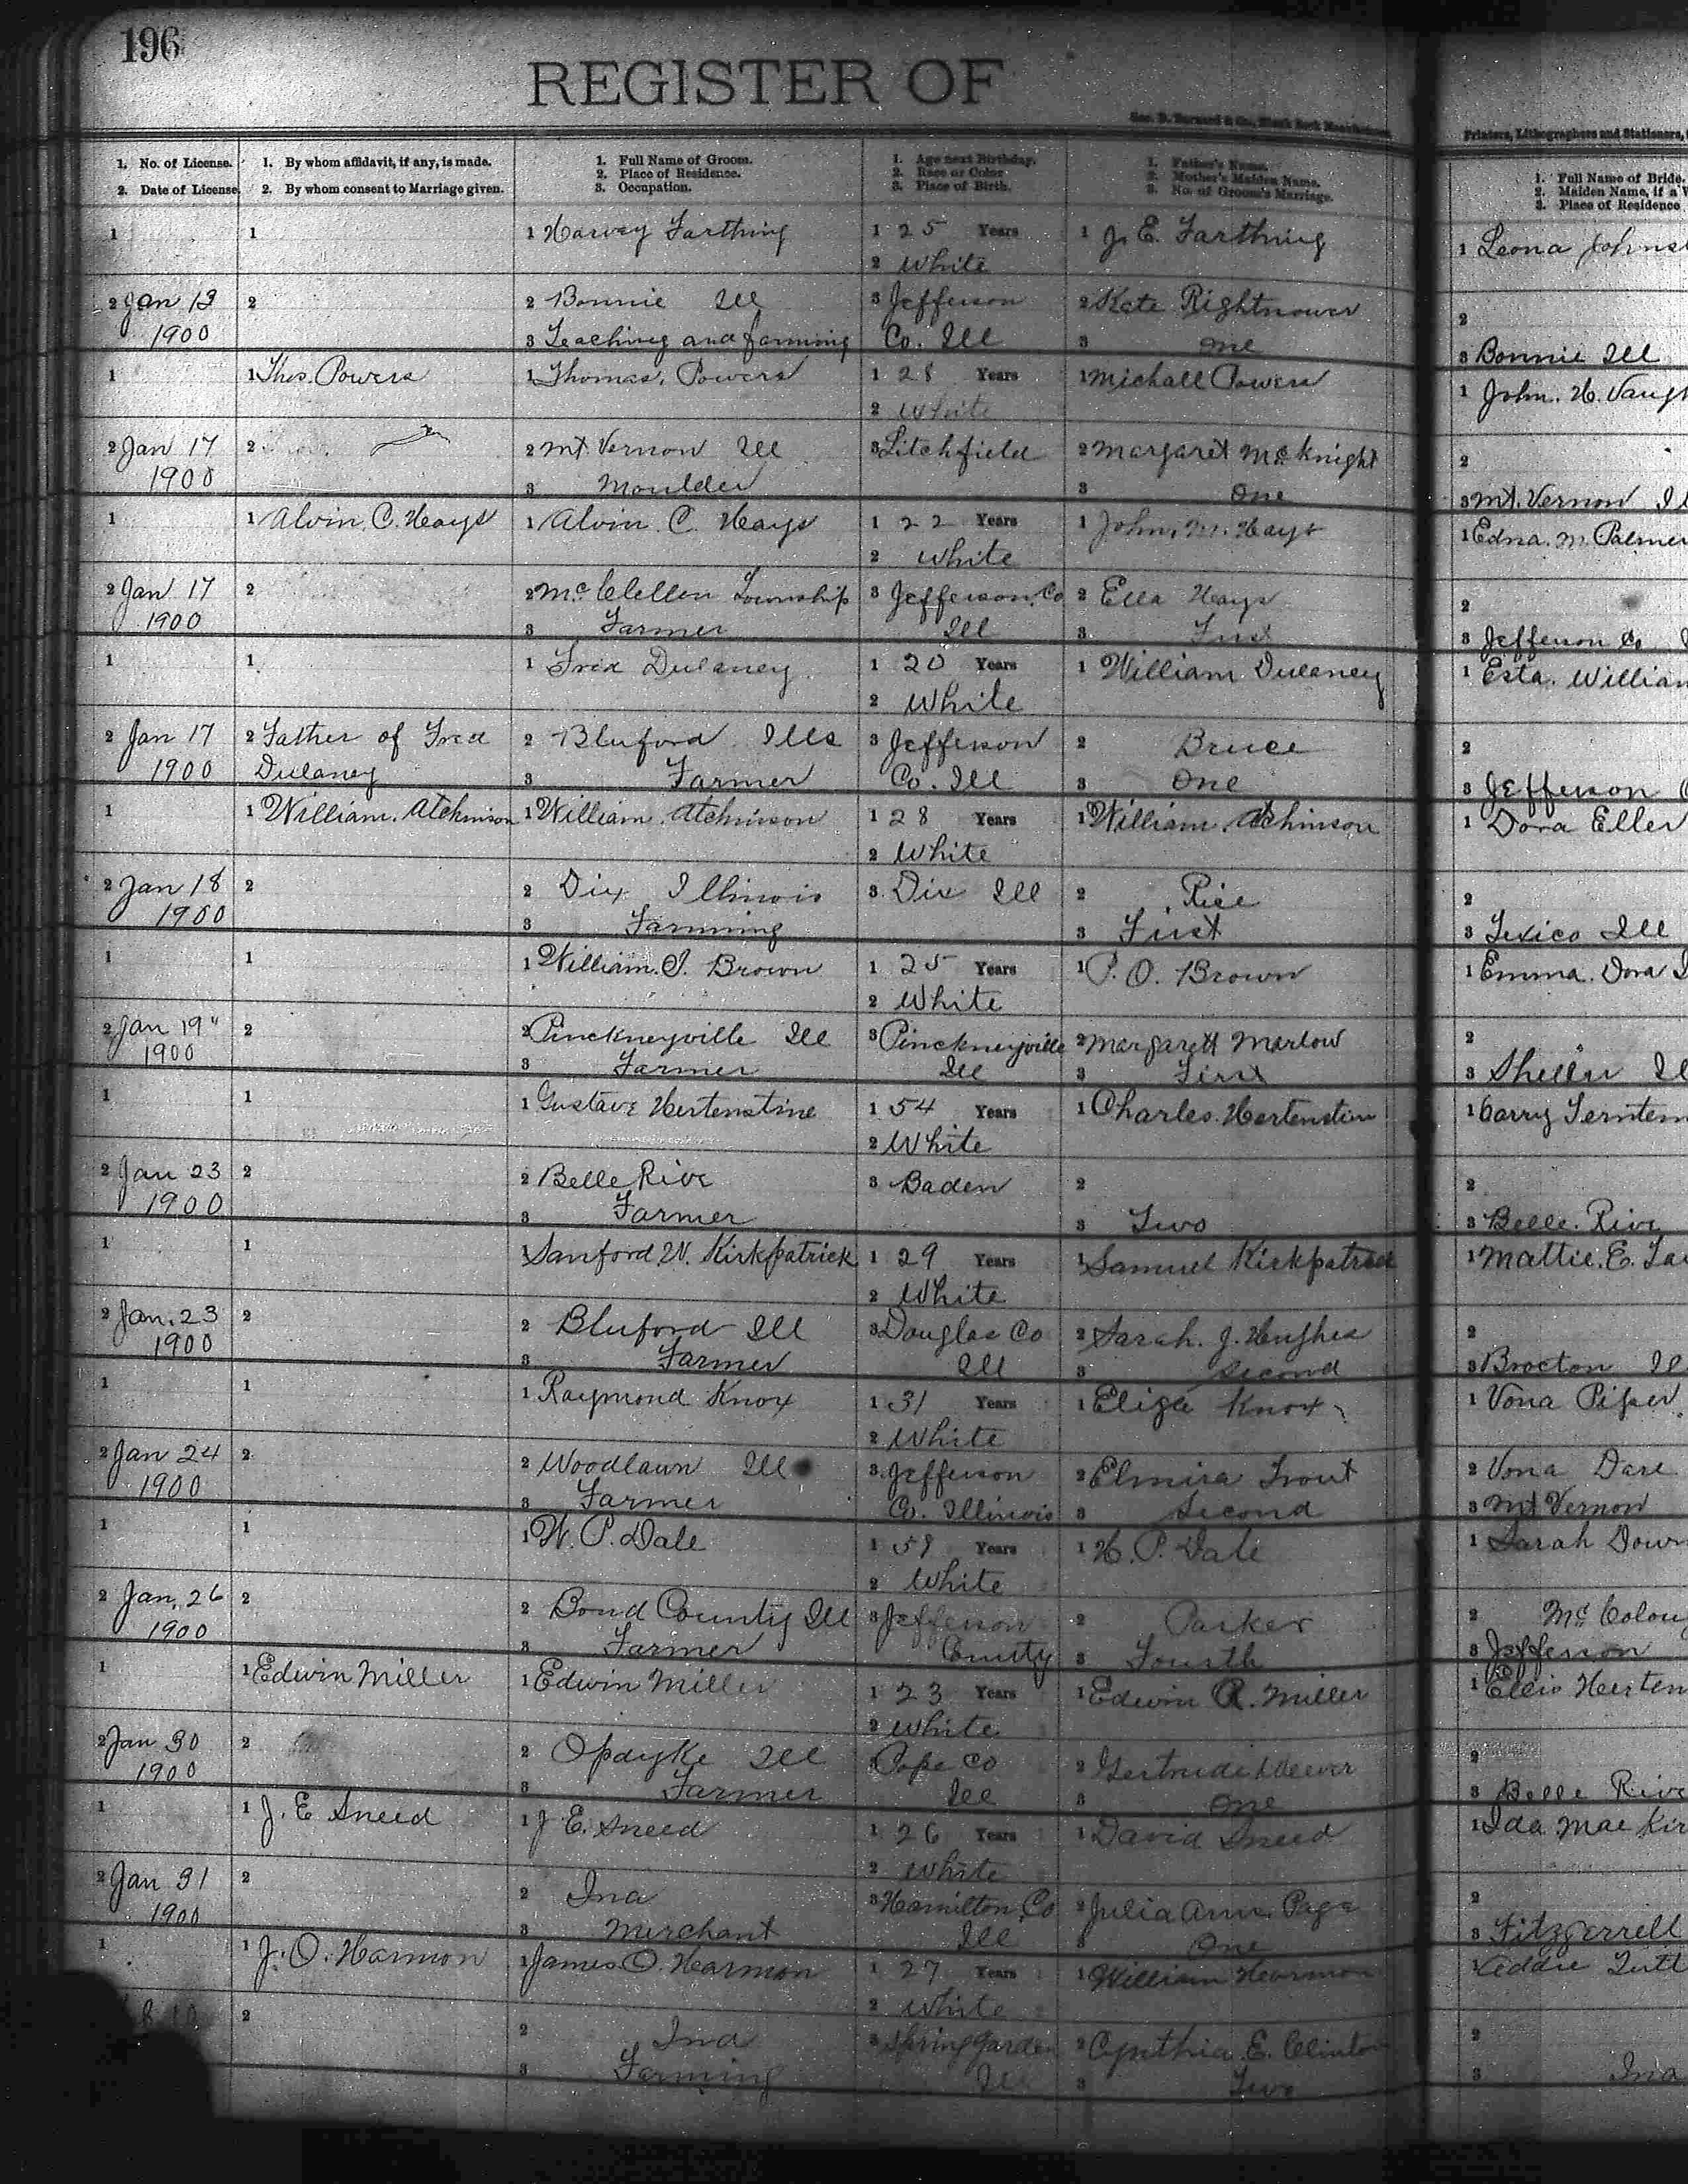 196
REGISTER OF
Geo. D. Barnard & Co., Blank Book Manufacturers,
Printers, Lithographers and Stationers,
1. No. of License.
2. Date of License.
1. By whom affidavit, if any, is made.
2. By whom consent to Marriage given.
1. Full Name of Groom.
2. Place of Residence.
3. Occupation.
1. Age next Birthday.
2. Race or Color
3. Place of Birth.
1. Father's Name.
2. Mother's Maiden Name.
3. No. of Groom's Marriage.
1. Full Name of Bride.
2. Maiden Name, if a W
3. Place of Residence
1
2 Jan 13
1900
1
2
1 Harvey Farthing
2 Bonnie Ill
3 Teaching and farming
1 25 Years
2 White
3 Jefferson
Co. Ill
1 J. E. Farthing
2 Kate Rightnower
3 One
1 Leona Johns
2
3 Bonnie Ill
1
2 Jan 17
1900
1 Thos. Powers
2
1 Thomas. Powers
2 Mt. Vernon Ill
3 Moulder
1 28 Years
2 White
3 Litchfield
1 Michall Powers
2 Margaret McKnight
3 One
1 John. H. Vaugh
2
3 Mt. Vernon Il
1
2 Jan 17
1900
1 Alvin. C. Hays
2
1 Alvin. C. Hays
2 McClellen Township
3 Farmer
1 22 Years
2 White
3 Jefferson. Co
Ill
1 John. M. Hays
2 Ella Hays
3 First
1 Edna. M. Palmer
2
3 Jefferson Co
1
2 Jan 17
1900
1
2 Father of Fred
Dulaney
1 Fred Dulaney
2 Bluford Ills
3 Farmer
1 20 Years
2 White
3 Jefferson
Co. Ill
1 William Dulaney
2 Bruce
3 One
1 Esta. William
2
3 Jefferson
1
2 Jan 18
1900
1 William. Atchinson
2
1 William. Atchinson
2 Dix Illinois
3 Farming
1 28 Years
2 White
3 Dix Ill
1 William. Atchinson
2 Rice
3 First
1 Dora Eller
2
3 Texico Ill
1
2 Jan 19"
1900
1
2
1 William. J. Brown
2 Pinckneyville Ill
3 Farmer
1 25 Years
2 White
3 Pinckneyville
Ill
1 P. O. Brown
2 Margarett Marlow
3 First
1 Emma. Dora
2
3 Sheller Il
1
2 Jan 23
1900
1
2
1 Gustave Hertenstine
2 Belle Rive
3 Farmer
1 54 Years
2 White
3 Baden
1 Charles. Hertenstein
2
3 Two
1 Carry
2
3 Belle. Rive
1
2 Jan. 23
1900
1
2
1 Sanford W. Kirkpatrick
2 Bluford Ill
3 Farmer
1 29 Years
2 White
3 Douglas Co
Ill
1 Samuel Kirkpatrick
2 Sarah. J. Hughes
3 Second
1 Mattie. E.
2
3 Brocton Il
1
2 Jan 24
1900
1
2
1 Raymond Knox
2 Woodlawn Ill
3 Farmer
1 31 Years
2 White
3 Jefferson
Co. Illinois
1 Eliga Knox
2 Elmira Trout
3 Second
1 Vona Piper
2 Vona Dare
3 Mt Vernon
1
2 Jan. 26
1900
1
2
1 W. P. Dale
2 Bond County Ill
3 Farmer
1 59 Years
2 White
3 Jefferson
County
1 H. P. Dale
2 Parker
3 Fourth
1 Sarah Down
2 McColou
3 Jefferson
1
2 Jan 30
1900
1 Edwin Miller
2
1 Edwin Miller
2 Opdyke Ill
3 Farmer
1 23 Years
2 White
Pope Co
Ill
1 Edwin R. Miller
2 Gertrude Weever
3 One
1 Ellis Herten
2
3 Belle Rive
1
2 Jan 31
1900
1 J. E Sneed
2
1 J. E. Sneed
2 Ina
3 Merchant
1 26 Years
2 White
3 Hamilton. Co
Ill
1 David Sneed
2 Julia Ann. Page
3 One
1 Ida Mae Kir
2
3 Fitzgerrell
1
1 J. O. Harmon
2
1 James. O. Harmon
2 Ina
3 Farming
1 27 Years
2 White
3 Spring Garden
Ill
1 William Harmon
2 Cynthia. E. Clinton
3 Two
1 Addie Tutt
2
3 Ina